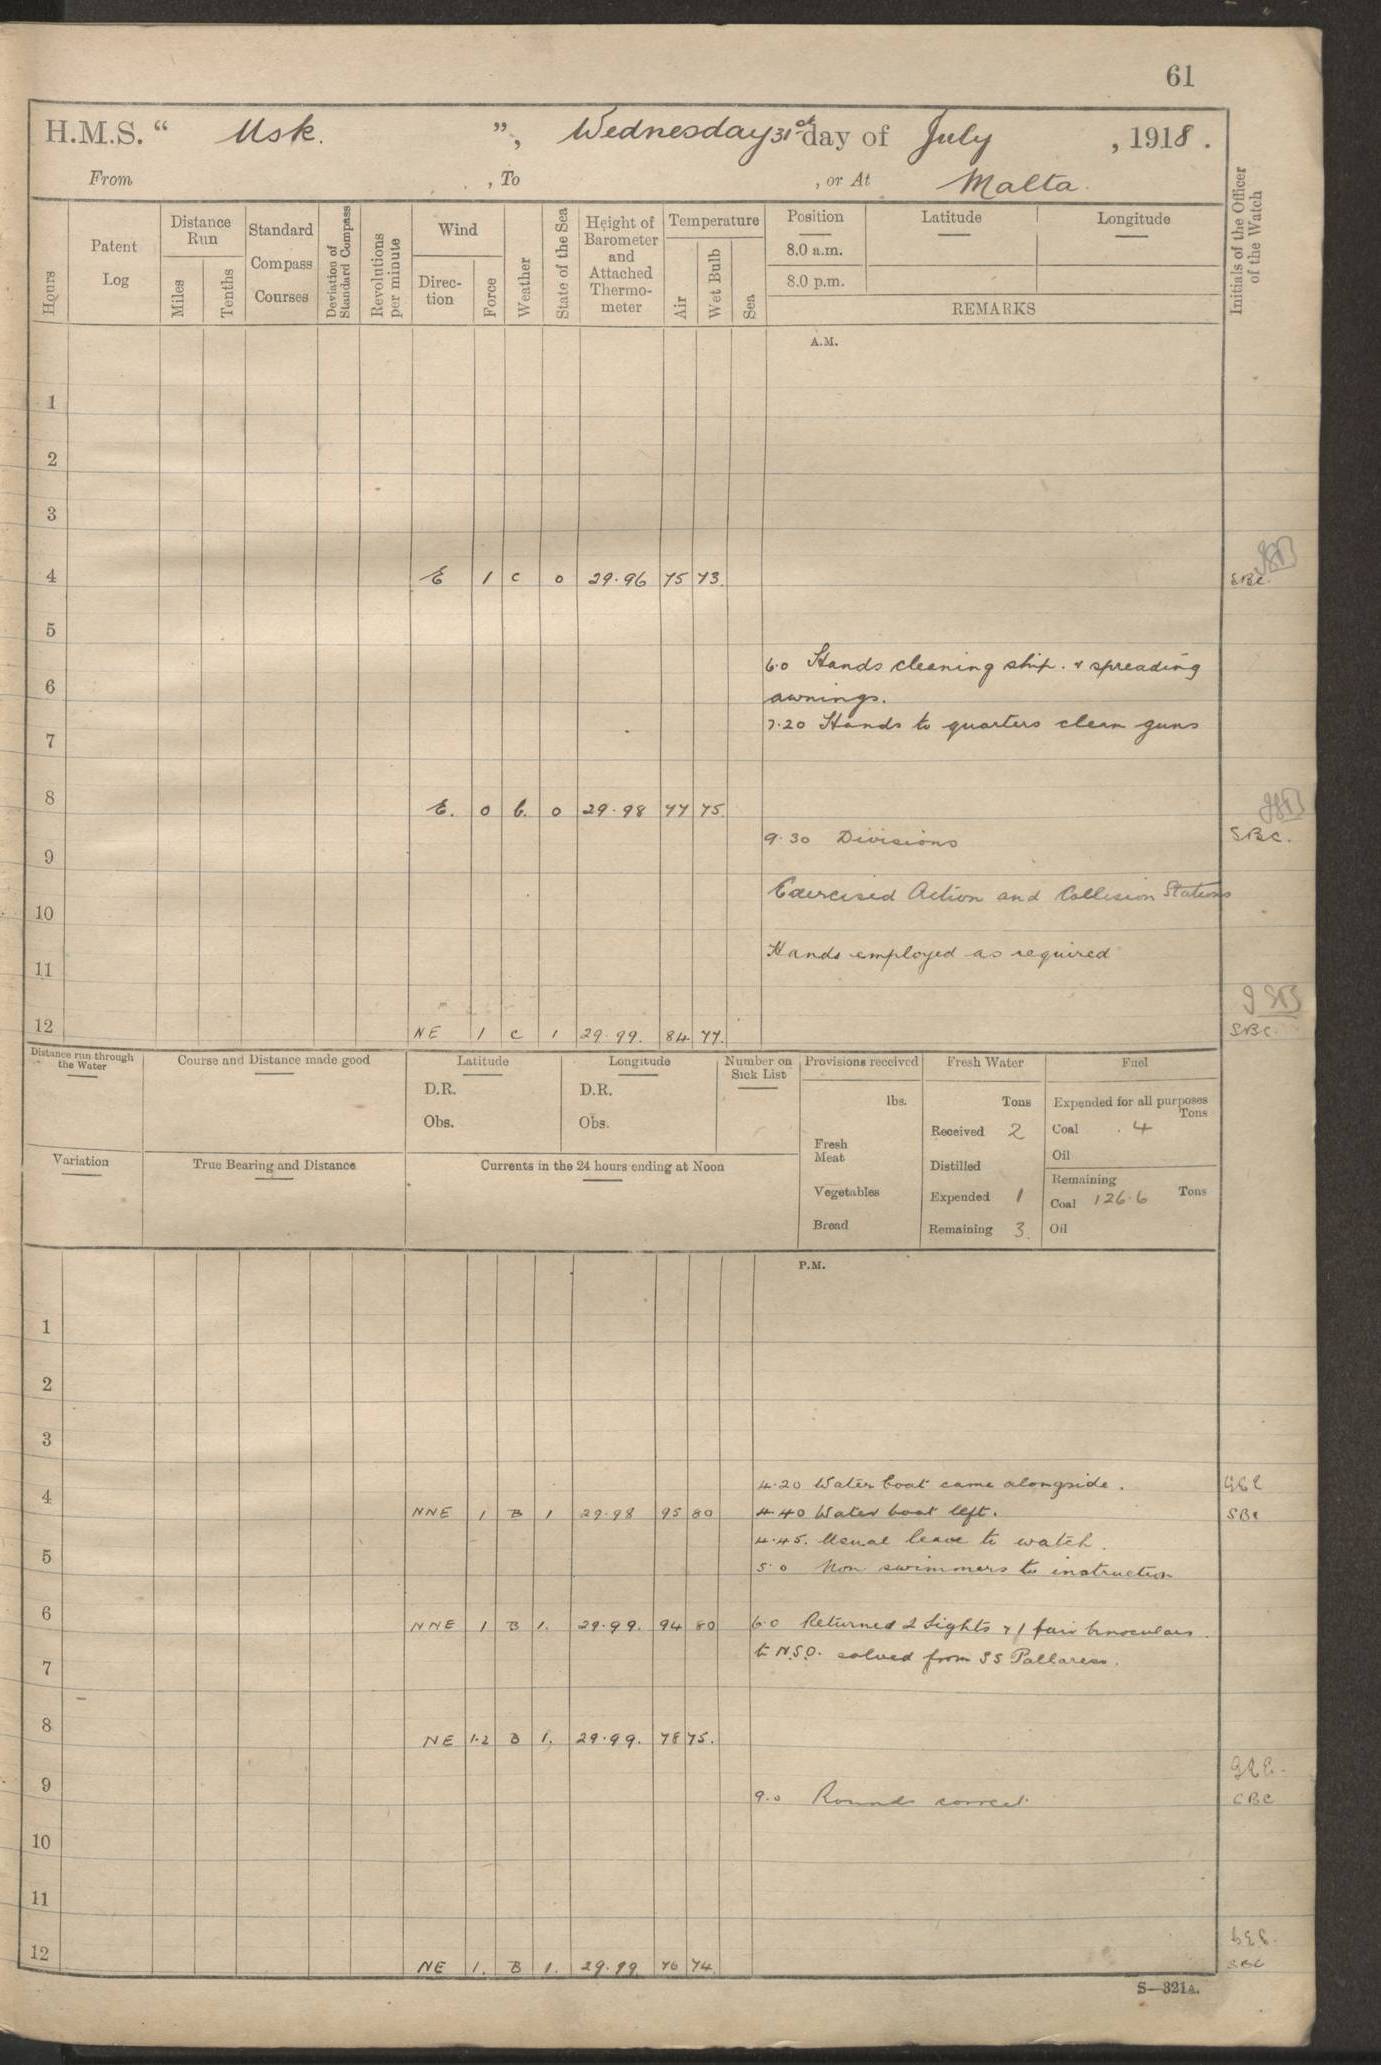 61
H.M.S. " Usk. ", Wednesday 31st day of July , 1918.
From , To , or At Malta.
Hours
Patent Log
Distance Run
Miles
Tenths
Standard Compass Courses
Deviation of Standard Compass
Revolutions per minute
Wind
Direction
Force
Weather
State of the Sea
Height of Barometer and Attached Thermometer
Temperature
Air
Wet Bulb
Sea
Position
8.0 a.m.
8.0 p.m.
Latitude
Longitude
REMARKS
Initials of the Officer of the Watch
A.M.
1
2
3
4 E 1 c 0 29.96 75 73 SBC.
5
6.0 Hands cleaning ship. & spreading
6 awnings.
7.20 Hands to quarters clean guns
7
8 E. 0 b. 0 29.98 77 75
9.30 Divisions SBC.
9
Exercised Action and Collision Stations
10
Hands employed as required
11
12 NE 1 c 1 29.99. 84 77. SBC
Distance run through the Water
Course and Distance made good
Latitude
D.R.
Obs.
Longitude
D.R.
Obs.
Number on Sick List
Provisions received
lbs.
Fresh Meat
Vegetables
Bread
Fresh Water
Tons
Received 2
Distilled
Expended 1
Remaining 3.
Fuel
Expended for all purposes
Tons
Coal .4
Oil
Remaining
Coal 126.6 Tons
Oil
Variation
True Bearing and Distance
Currents in the 24 hours ending at Noon
P.M.
1
2
3
4.20 Water boat came alongside.
4
NNE 1 B 1 29.98 95 80 4.40 Water boat left. SBC
4.45. Usual leave to watch.
5
5.0 Non swimmers to instruction
6
NNE 1 B 1. 29.99. 94 80 6.0 Returned 2 Sights & 1 pair binoculars
to N.S.O. salved from SS Pallaress.
7
8
NE 1.2 B 1. 29.99. 78 75.
9
9.0 Rounds correct
10
11
12
NE 1. B 1. 29.99 76 74 SBC
S—321A.